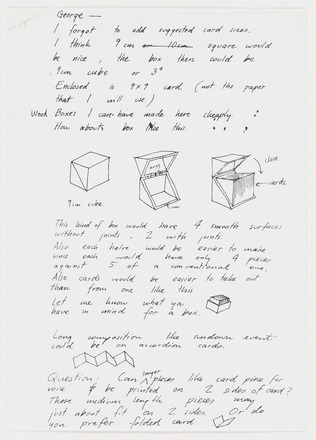 George —
I forgot to add suggested card sizes.
I think 9 cm or 10cm square would
be nice, the box then could be
9cm cube or 3"
Enclosed is 9x9 card (not the paper
that I will use)
Wood Boxes I can have made here cheaply.
How about box like this.
close
cards
9cm cube
This kind of box would have 4 smooth surfaces
without joints & 2 with joints.
Also each halve would be easier to make
since each would have only 4 pieces
against 5 of a conventional one.
Also cards would be easier to take out
than from one like this
Let me know what ya
have in mind for a box.
Long composition like sundown event
could be on accordion cards.
Question: Can longer pieces like card piece for
voice & be printed on 2 sides of card?
These medium length pieces may
just about fit on 2 sides. Or do
you prefer folded card